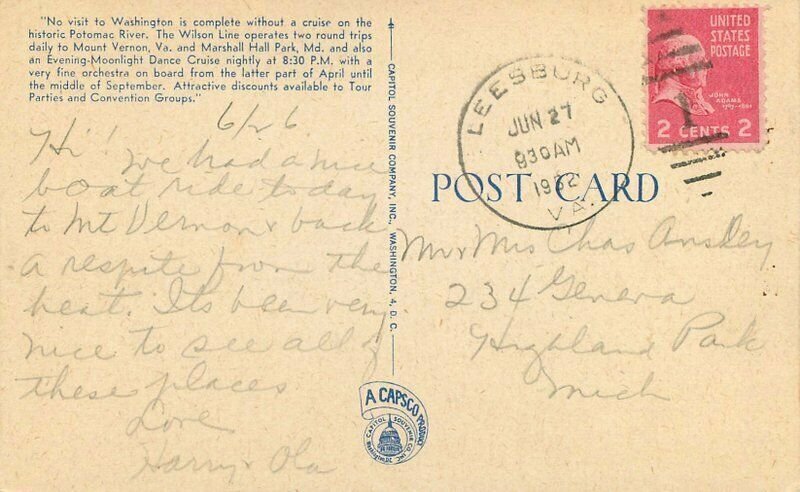 "No visit to Washington is complete without a cruise on the
historic Potomac River. The Wilson Line operates two round trips
daily to Mount Vernon, Va. and Marshall Hall Park, Md. and also
an Evening-Moonlight Dance Cruise nightly at 8:30 P.M. with a
very fine orchestra on board from the latter part of April until
the middle of September. Attractive discounts available to Tour
Parties and Convention Groups."
6/26
Hi! We had a nice
boat ride today
to Mt Vernon & back
a respite from the
heat. Its been very
nice to see all of
these places
Love
Harry & Ola
CAPITOL SOUVENIR COMPANY, INC., WASHINGTON, 4, D. C.
A CAPSCO PRODUCT
CAPITOL SOUVENIR CO. INC.
LEESBURG
JUN 27
930 AM
1952
VA.
UNITED
STATES
POSTAGE
JOHN
ADAMS
1797-1801
2 CENTS 2
POST CARD
Mr & Mrs Chas
234 Geneva
Highland Park
Mich